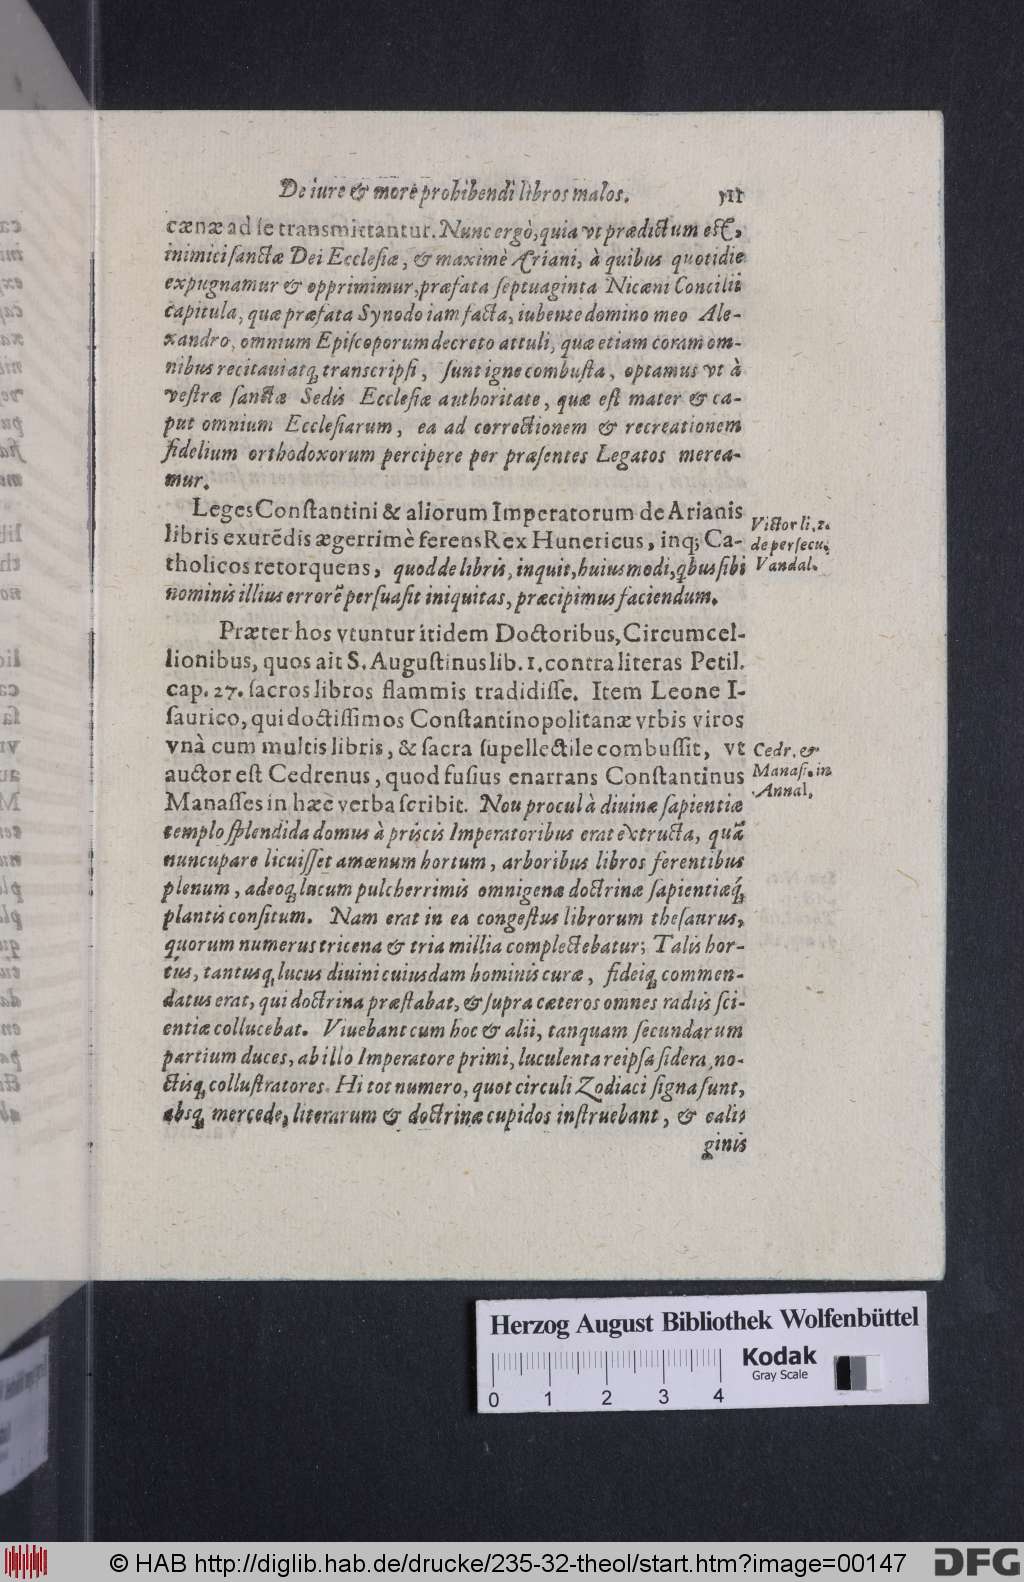 De iure & more prohibendi libros malos. 111
cænæ ad ſe transmittantur. Nunc ergò, quia vt prædictum eſt,
inimici ſanctæ Dei Eccleſiæ, & maximè Æriani, à quibus quotidie
expugnamur & opprimimur, præfata ſeptuaginta Nicæni Concilii
Capitula, quæ præfata Synodo iam facta, iubente domino meo Ale-
xandro, omnium Epiſcoporum decreto attuli, quæ etiam coram om-
nibus recitaui atq́, transcripſi, ſunt igne combuſta, optamus vt à
veſtræ ſanctæ Sedis Eccleſiæ authoritate, quæ eſt mater & ca-
put omnium Eccleſiarum, ea ad correctionem & recreationem
fidelium orthodoxorum percipere per præſentes Legatos merea-
mur.
Leges Conſtantini & aliorum Imperatorum de Arianis
libris exurẽdis ægerrimè ferens Rex Hunericus, inq; Ca-
tholicos retorquens, quod de libris, inquit, huiusmodi, qbus ſibi
nominis illius errorẽ perſuaſit iniquitas, præcipimus faciendum.
Victor li. 2.
de perſecu.
Vandal.
Præter hos vtuntur itidem Doctoribus, Circumcel-
lionibus, quos ait S. Auguſtinus lib. 1. contra literas Petil.
cap. 27. ſacros libros flammis tradidiſſe. Item Leone I-
ſaurico, qui doctiſſimos Conſtantinopolitanæ vrbis viros
vnà cum multis libris, & ſacra ſupellectile combuſſit, vt
auctor eſt Cedrenus, quod fuſius enarrans Conſtantinus
Manaſſes in hæc verba ſcribit. Non procul à diuinæ ſapientiæ
Cedr. &
Manaſ. in
Annal.
templo ſplendida domus à priscis Imperatoribus erat extructa, quã
nuncupare licuiſſet amœnum hortum, arboribus libros ferentibus
plenum, adeoq́, lucum pulcherrimis omnigenæ doctrinæ ſapientiæq́,
plantis conſitum. Nam erat in ea congeſtus librorum theſaurus,
quorum numerus tricena & tria millia complectebatur; Talis hor-
tus, tantusq́, lucus diuini cuiusdam hominis curæ, fideiq́, commen-
datus erat, qui doctrina præſtabat, & ſupra cæteros omnes radiis ſci-
entiæ collucebat. Viuebant cum hoc & alii, tanquam ſecundarum
partium duces, ab illo Imperatore primi, luculenta reipſa ſidera, no-
ctisq́, colluſtratores. Hi tot numero, quot circuli Zodiaci ſigna ſunt,
absq́, mercede, literarum & doctrinæ cupidos inſtruebant, & ealis
ginis
Herzog August Bibliothek Wolfenbüttel
Kodak
Gray Scale
0 1 2 3 4
© HAB http://diglib.hab.de/drucke/235-32-theol/start.htm?image=00147
DFG